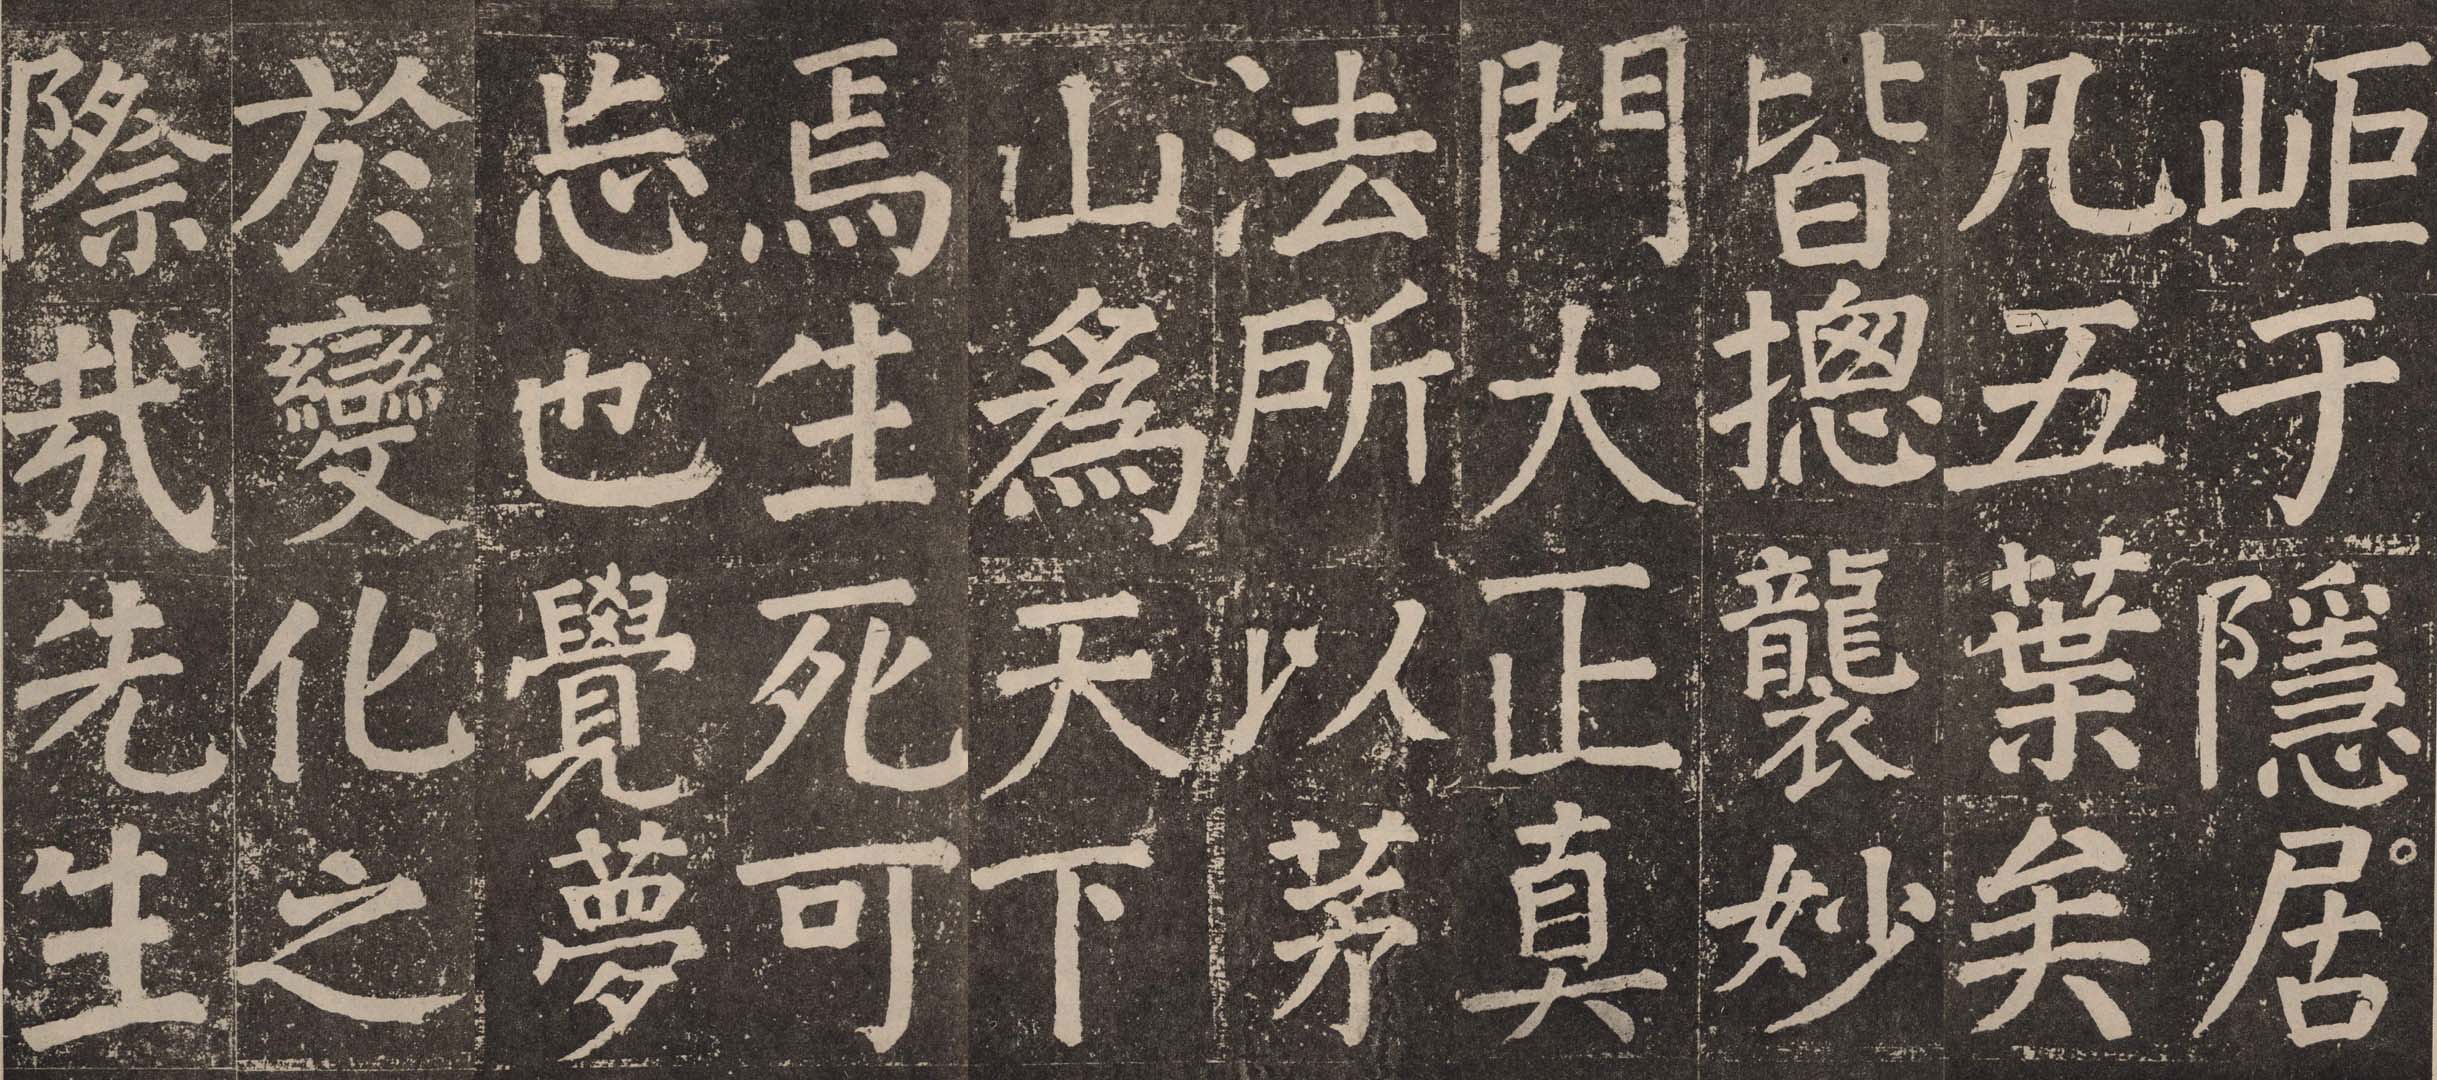 岠于隱居
凡五葉矣
皆摠襲妙
門大正真
法所以茅
山為天下
焉生死可
忘也覺夢
於變化之
際㢤先生